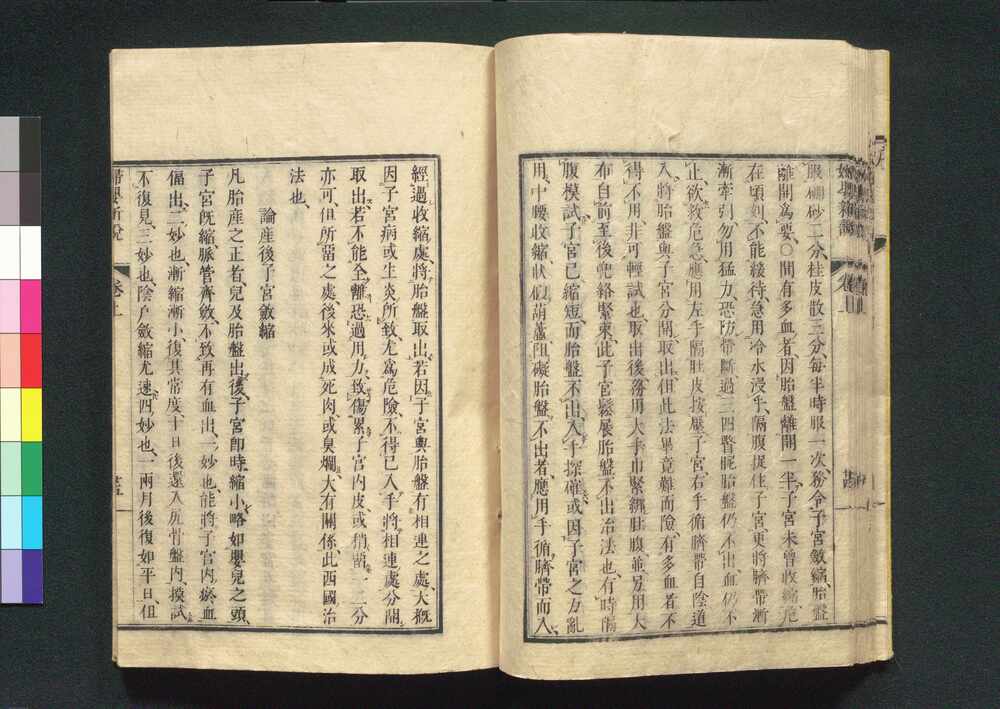 服硼砂二分桂皮散三分每半時服一次務令子宮斂縮胎盤
離開爲要○間有多血者因胎盤離開一半子宮未曾收縮危
在頃刻不能緩待急用冷水浸手隔腹捉住子宮更將臍帶漸
漸牽引勿用猛力恐防帶斷過三四瞥胎盤仍不出血仍不
止欲救危急應用左手隔肚皮按壓子宮右手循臍帶自陰道
入將胎盤與子宮分開取出但此法畢竟難而險有多血者不
得不用非可輕試也取出後務用大手巾緊綁肚腹並另用大
布自前至後兜絡緊束此子宮鬆展胎盤不出治法也有時隔
腹模試子宮已縮短而胎盤不出入手探確或因子宮之力亂
用中腰收縮狀似葫蘆阻礙胎盤不出者應用手循臍帶而入
經過收縮處將胎盤取出若因子宮與胎盤有相連之處大槪
因子宮病或生炎所致尤爲危險不得已入手將相連處分開
取出若不能全離恐過用力致傷累子宮內皮或稍留一二分
亦可但所留之處後來或成死肉或臭爛大有關係此西國治
法也
論産後子宮斂縮
凡胎産之正者兒及胎盤出後子宮卽時縮小略如嬰兒之頭
子宮旣縮脈管齊斂不致再有血出一妙也能將子宮內瘀血
偪出二妙也漸縮漸小復其常度十日後還入尻骨盤內摸試
不復見三妙也陰戶斂縮尤速四妙也一兩月後復如平日但
婦嬰新說
卷上